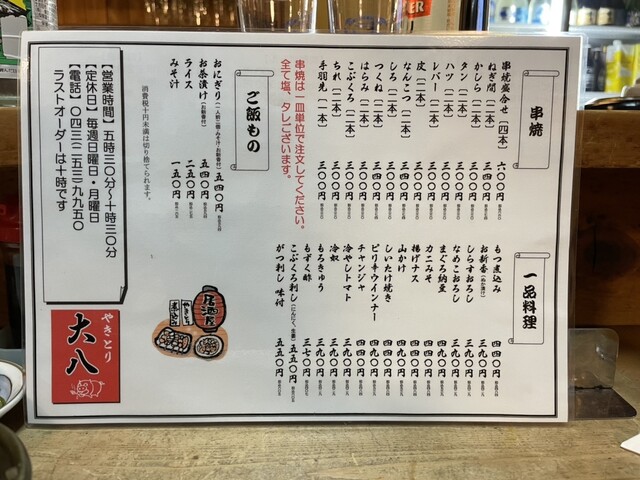 串焼
串焼盛合せ(四本) 六〇〇円
ねぎ間(二本) 三四〇円
かしら(二本) 三〇〇円
タン(二本) 三〇〇円
ハツ(二本) 三〇〇円
レバー(二本) 三〇〇円
皮(二本) 三〇〇円
なんこつ(二本) 三〇〇円
しろ(二本) 三〇〇円
つくね(二本) 三四〇円
はらみ(二本) 三〇〇円
こぶくろ(二本) 三〇〇円
ちれ(二本) 三〇〇円
手羽先(一本) 三〇〇円
串焼は一皿単位で注文してください。
全て塩、タレございます。
ご飯もの
おにぎり(一人前二個・みそ汁・お新香付) 五四〇円
お茶漬け(お新香付) 五四〇円
ライス 二五〇円
みそ汁 一五〇円
消費税十円未満は切り捨てられます。
【営業時間】五時三〇分〜十時三〇分
【定休日】毎週日曜日・月曜日
【電話】〇四三(二五三)九九五〇
ラストオーダーは十時です
一品料理
もつ煮込み 四四〇円
お新香(ぬか漬け) 三九〇円
しらすおろし 三九〇円
なめこおろし 三九〇円
まぐろ納豆 四四〇円
カニみそ 四四〇円
揚げナス
山かけ
しいたけ焼き
ピリ辛ウインナー
チャンジャ 四四〇円
冷やしトマト 三九〇円
冷奴 三九〇円
もろきゅう 三九〇円
もずく酢 三七〇円
こぶくろ刺し(にんにく、生姜) 五五〇円
がつ刺し 味付 五五〇円
居酒屋
やきとり
煮込み
やきとり
大八